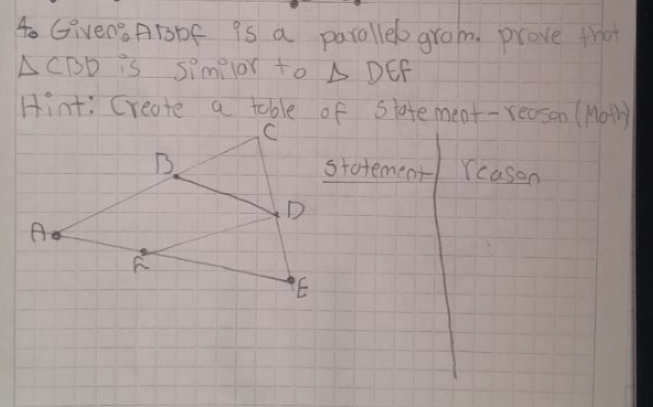 4. Given: ABDF is a parallelogram. prove that
Δ CBD is similar to Δ DEF
Hint: Create a table of statement-reason (Math)
C
B
statement reason
D
A
F
E